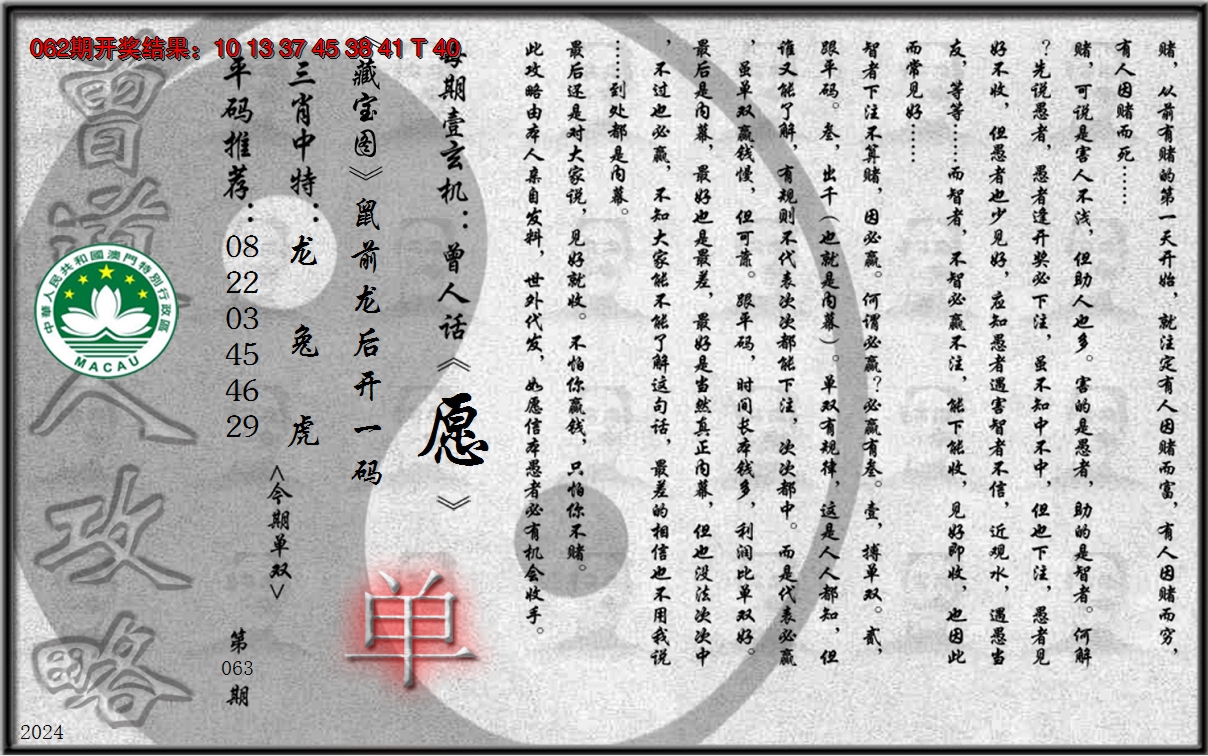 062期开奖结果：10 13 37 45 38 41 T 40
赌，从前有赌的第一天开始，就注定有人因赌而富，有人因赌而穷，
有人因赌而死……
赌，可说是害人不浅，但助人也多。害的是愚者，助的是智者。何解
？先说愚者，愚者逢开奖必下注，虽不知中不中，但也下注，愚者见
好不收，但愚者也少见好，应知愚者遇害智者不信，近观水，遇愚当
友，等等……而智者，不智必赢不注，能下能收，见好即收，也因此
而常见好……
智者下注不算赌，因必赢。何谓必赢？必赢有叁。壹，搏单双。贰，
跟平码。叁，出千（也就是内幕）。单双有规律，这是人人都知，但
谁又能了解，有规则不代表次次都能下注，次次都中。而是代表必赢
，虽单双赢钱慢，但可靠。跟平码，时间长本钱多，利润比单双好。
最后是内幕，最好也是最差，最好是当然真正内幕，但也没法次次中
，不过也必赢，不知大家能不能了解这句话，最差的相信也不用我说
……到处都是内幕。
最后还是对大家说，见好就收。不怕你赢钱，只怕你不赌。
此攻略由本人亲自发料，世外代发，如愿信本愚者必有机会收手。
每期壹玄机：曾人话《愿》
《藏宝图》鼠前龙后开一码
单
三肖中特：龙 兔 虎
<今期单双>
平码推荐：08 22 03 45 46 29
第063期
曾道人攻略
中華人民共和國澳門特別行政區
MACAU
2024